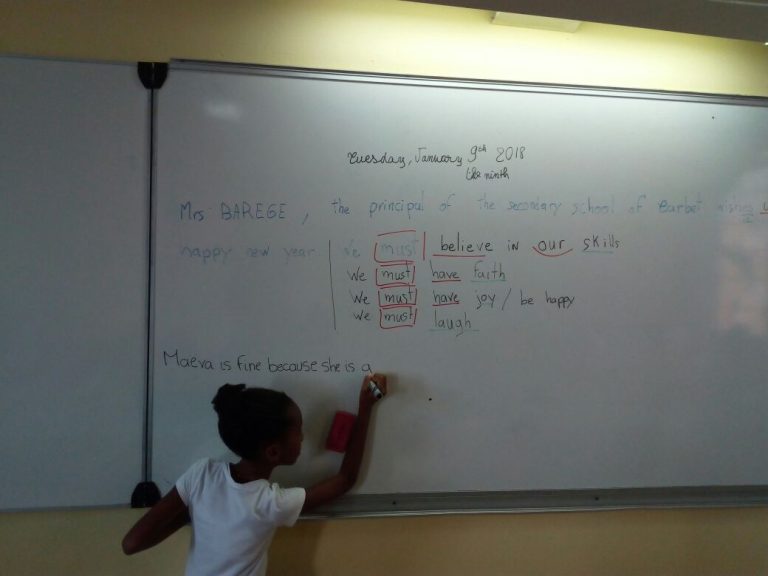 Tuesday, January 9th 2018
the ninth
Mrs BAREGE, the principal of the secondary school of Barbot wishes
happy new year. We must believe in our skills
We must have faith
We must have joy / be happy
We must laugh
Maeva is fine because she is a